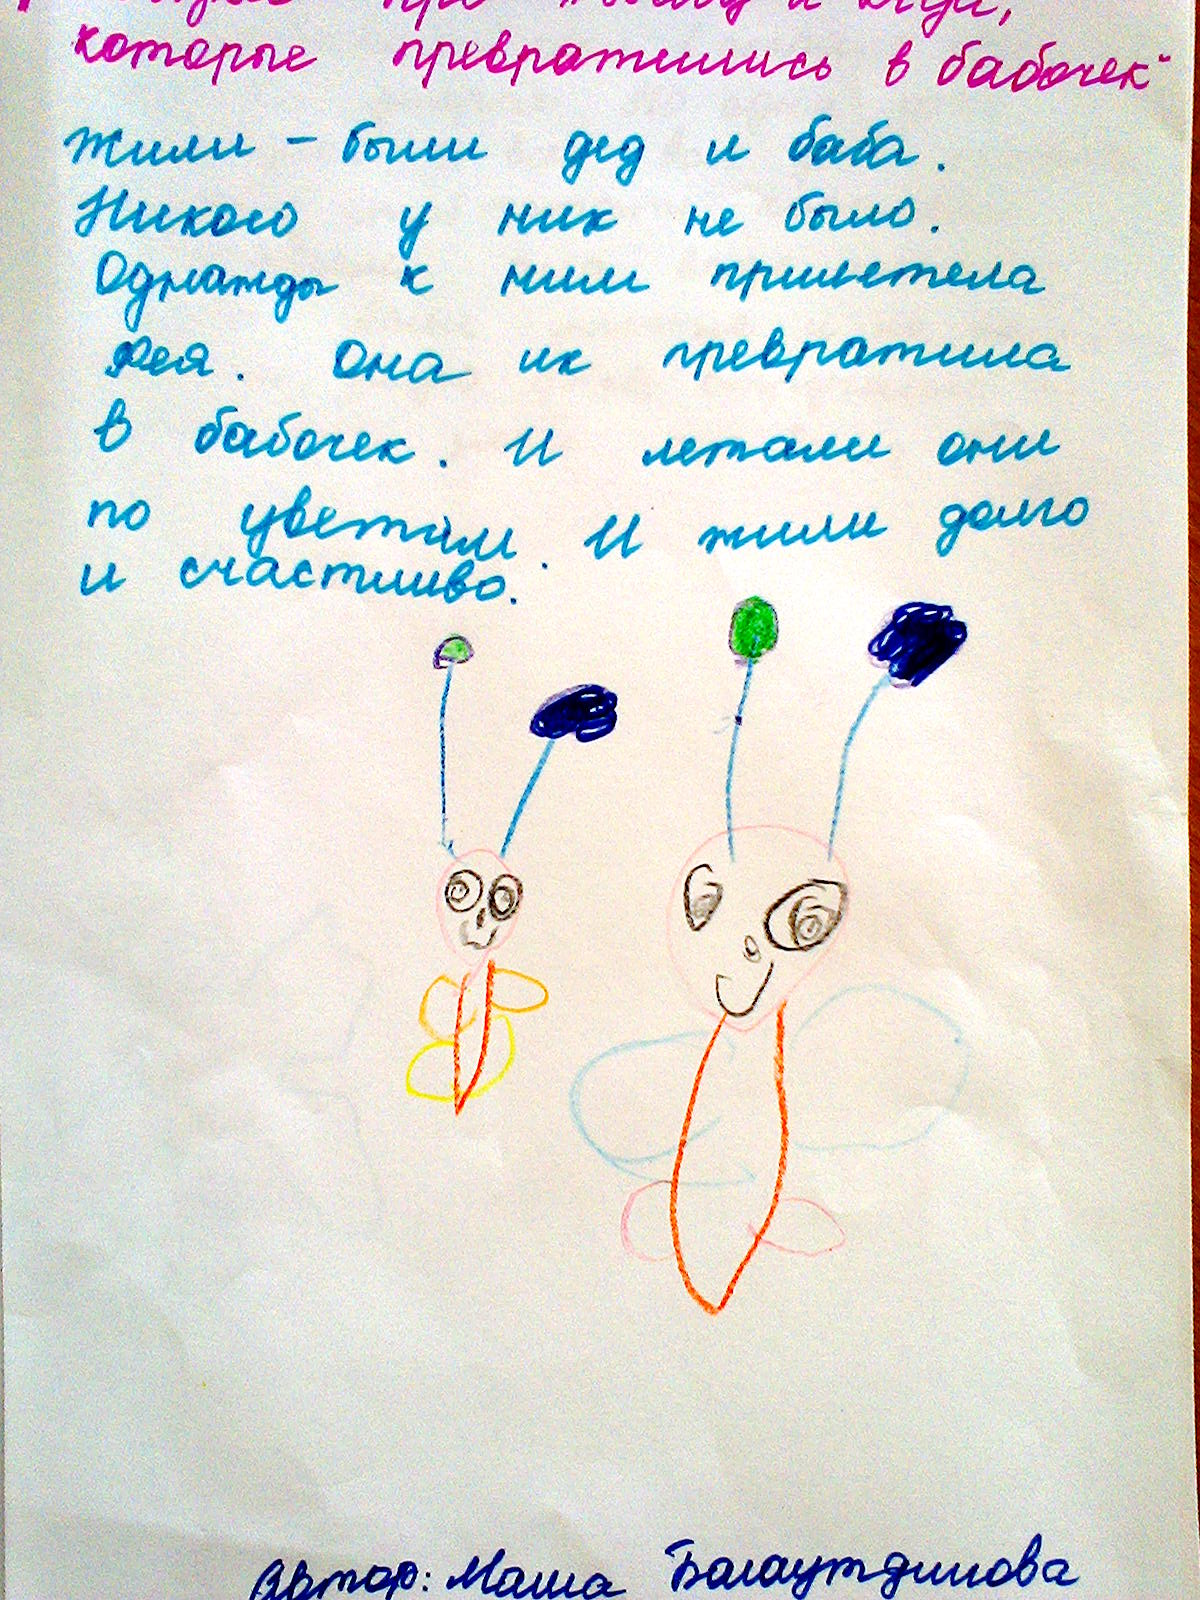 про бабу и деда,
которые превратились в бабочек"
Жили - были дед и баба.
Никого у них не было.
Однажды к ним прилетела
фея. Она их превратила
в бабочек. И летали они
по цветам. И жили долго
и счастливо.
Автор: Маша Балаутдинова